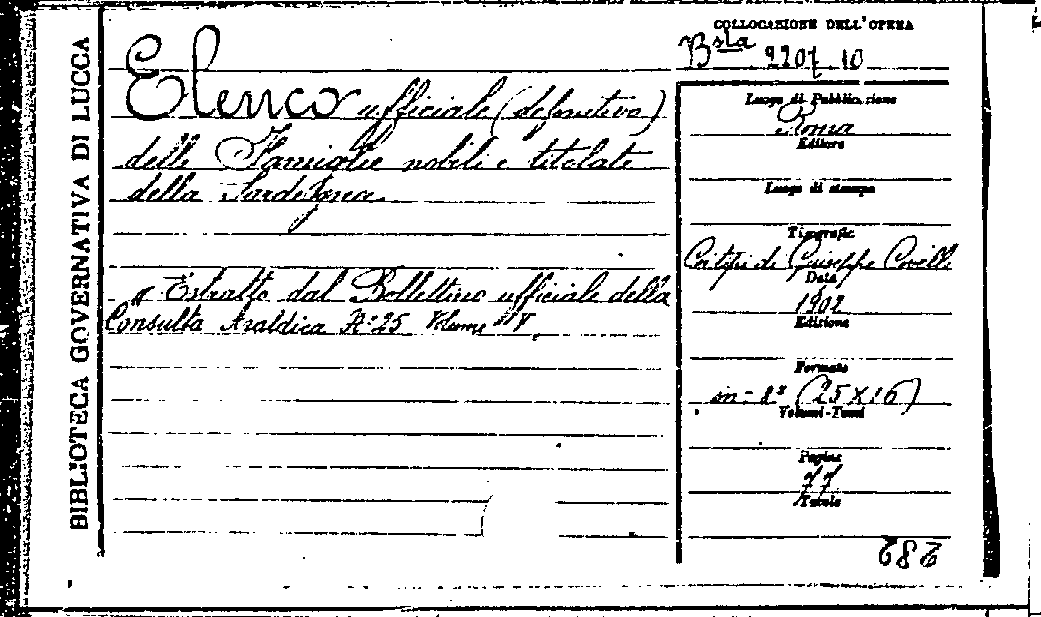 BIBLIOTECA GOVERNATIVA DI LUCCA
COLLOCAZIONE DELL'OPERA
Bsta 2207 10
Elenco ufficiale (definitivo)
delle Famiglie nobili e titolate
della Sardegna
"Estratto dal Bollettino ufficiale della
Consulta Araldica N° 25 Volume V
Luogo di Pubblicazione
Roma
Editore
Luogo di stampa
Tipografia
di Giuseppe Civelli
Data
1902
Edizione
Formato
in-8° (25x16)
Volumi-Tomi
Pagine
77
Tavole
282